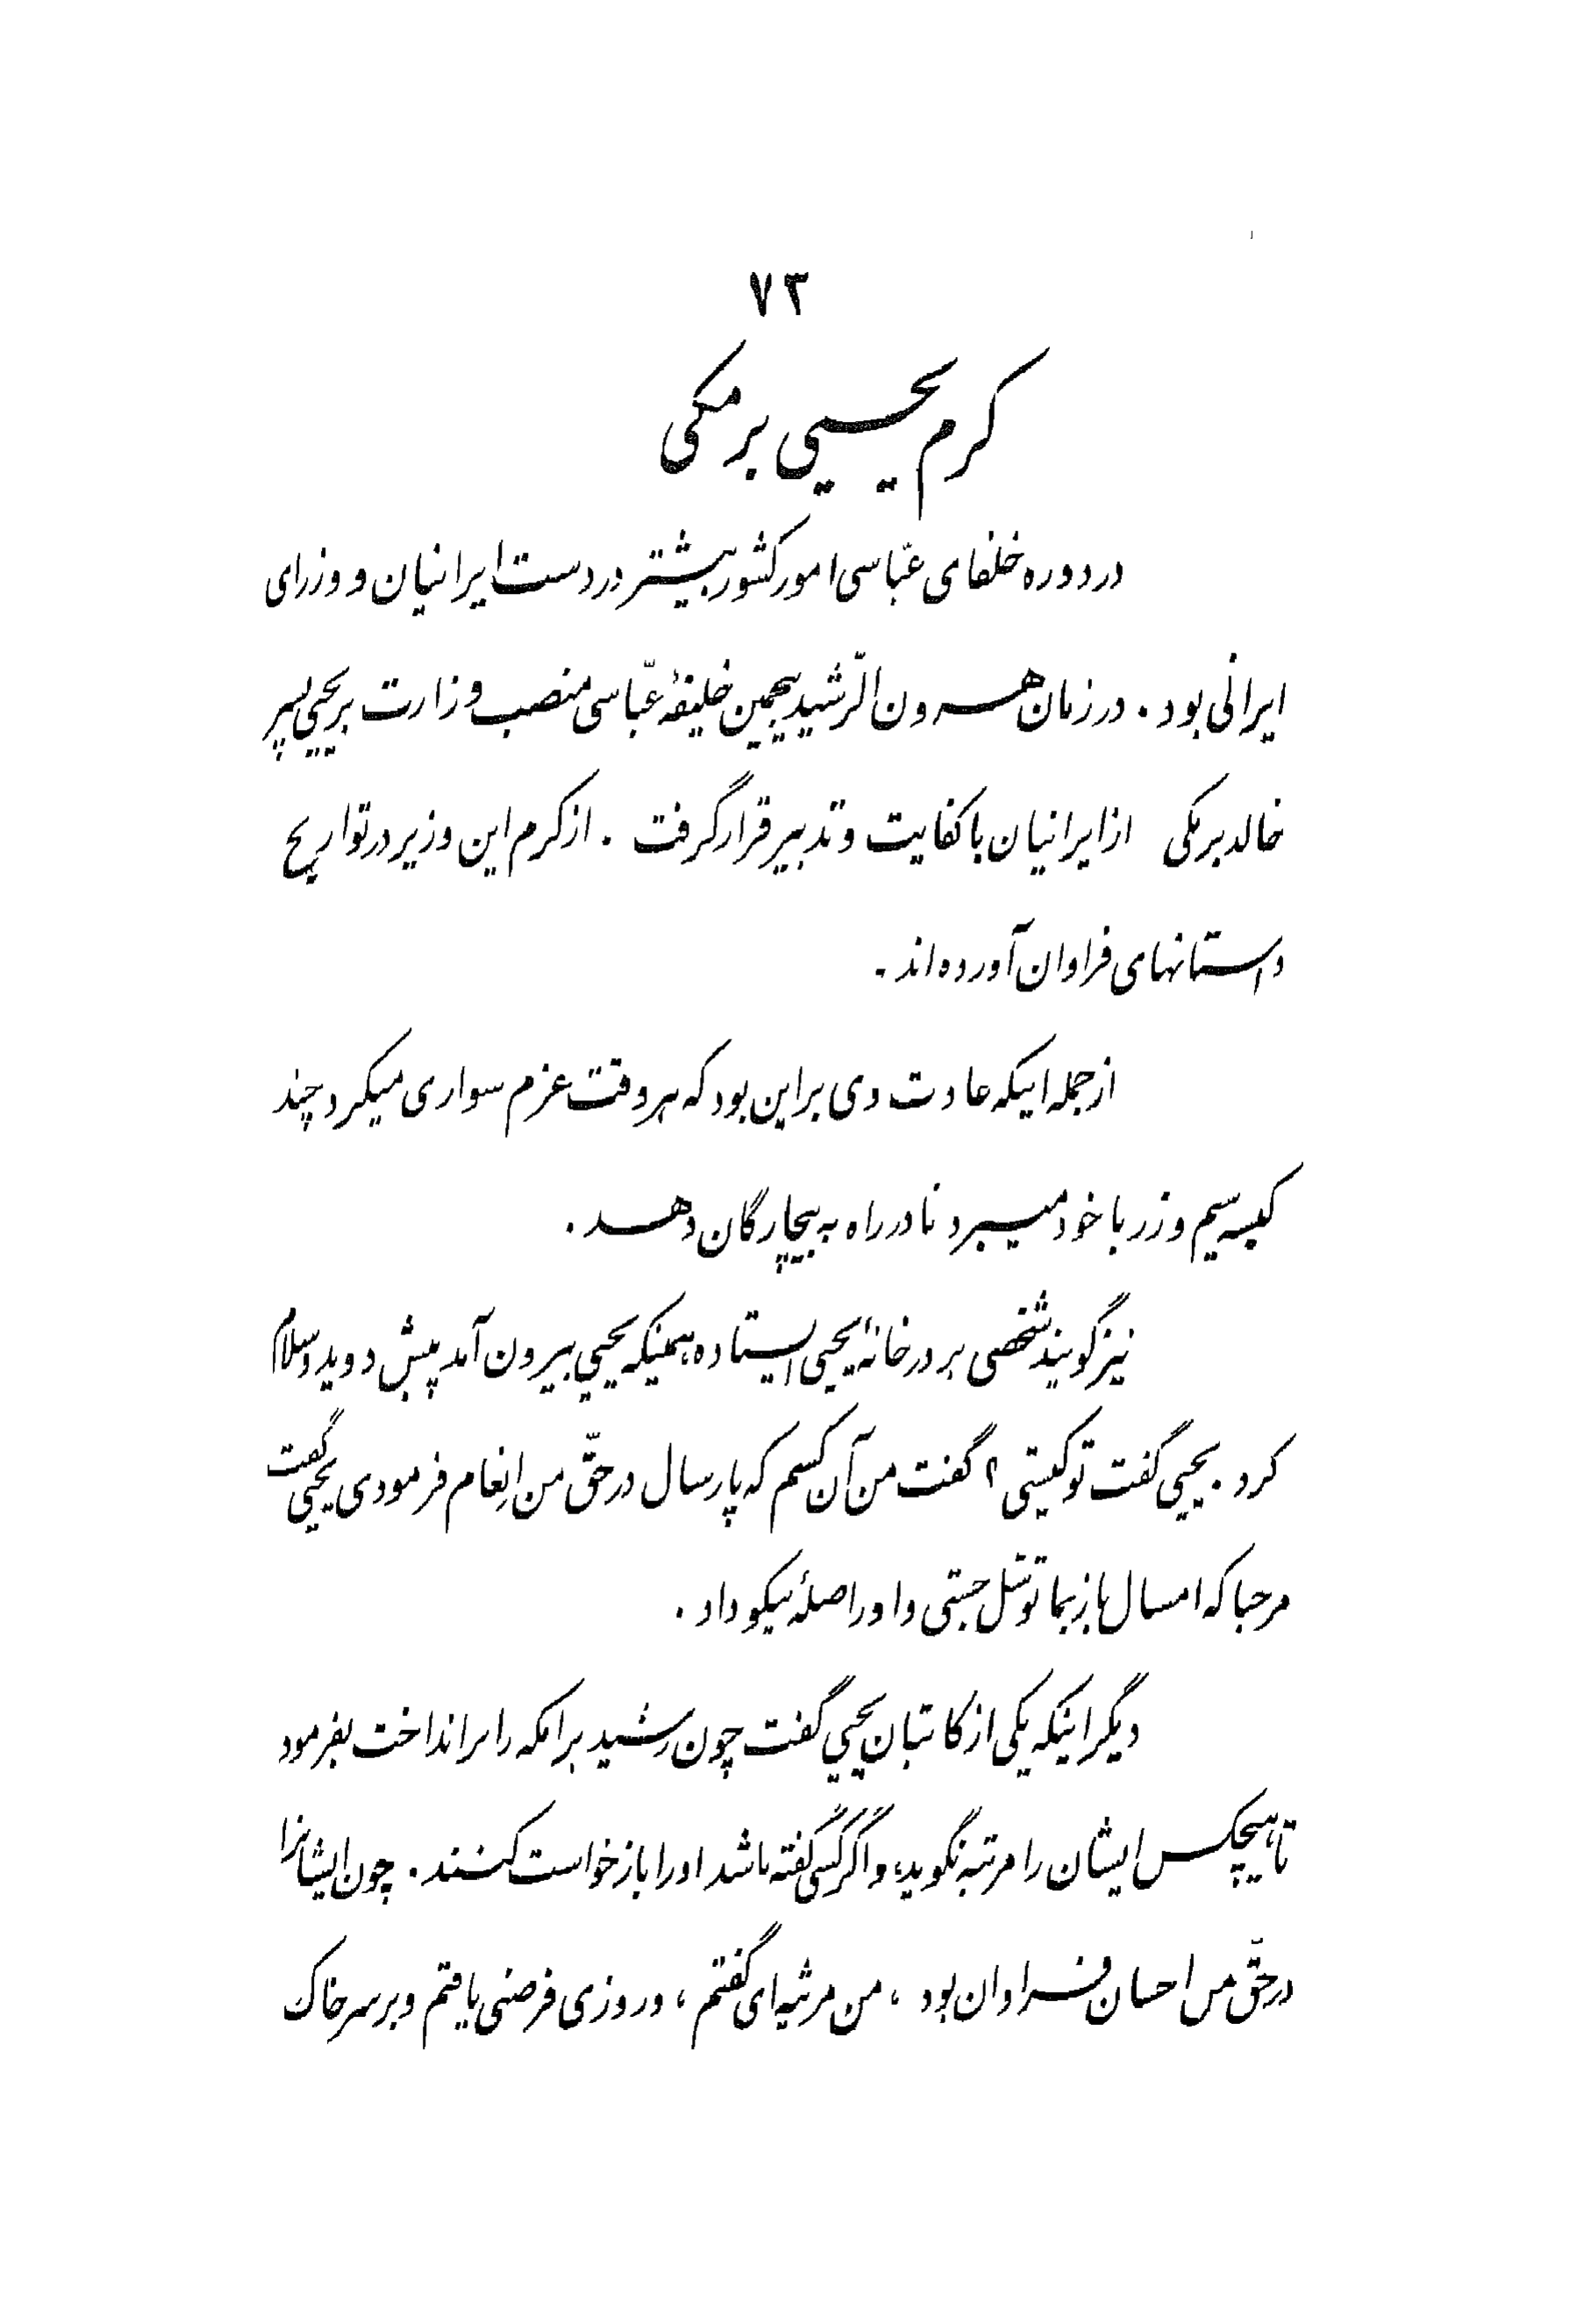 ۷۳
کرم یحیی برمکی
در دوره خلفای عبّاسی امور کشور بیشتر در دست ایرانیان و وزرای
ایرانی بود . در زمان هرون الرّشید پنجمین خلیفهٔ عبّاسی منصب وزارت بر یحیی پسر
خالد برمکی از ایرانیان با کفایت و تدبیر قرار گرفت . از کرم این وزیر در تواریخ
داستانهای فراوان آورده‌اند .
از جمله اینکه عادت وی بر این بود که هر وقت عزم سواری میکرد چند
کیسه سیم و زر با خود میبرد تا در راه به بیچارگان دهد .
نیز گویند شخصی بر در خانهٔ یحیی ایستاده، همینکه یحیی بیرون آمد پیش دوید و سلام
کرد . یحیی گفت تو کیستی ؟ گفت من آن کسم که پارسال در حقّ من اِنعام فرمودی یحیی گفت
مرحبا که امسال باز بما توسّل جستی و او را صلهٔ نیکو داد .
دیگر اینکه یکی از کاتبان یحیی گفت چون رشید برامکه را برانداخت بفرمود
تا هیچکس ایشان را مرثیه نگوید، و اگر کسی گفته باشد او را بازخواست کنند . چون ایشانرا
در حقّ من احسان فراوان بود ، من مرثیه‌ای گفتم ، و روزی فرصتی یافتم و بر سر خاک